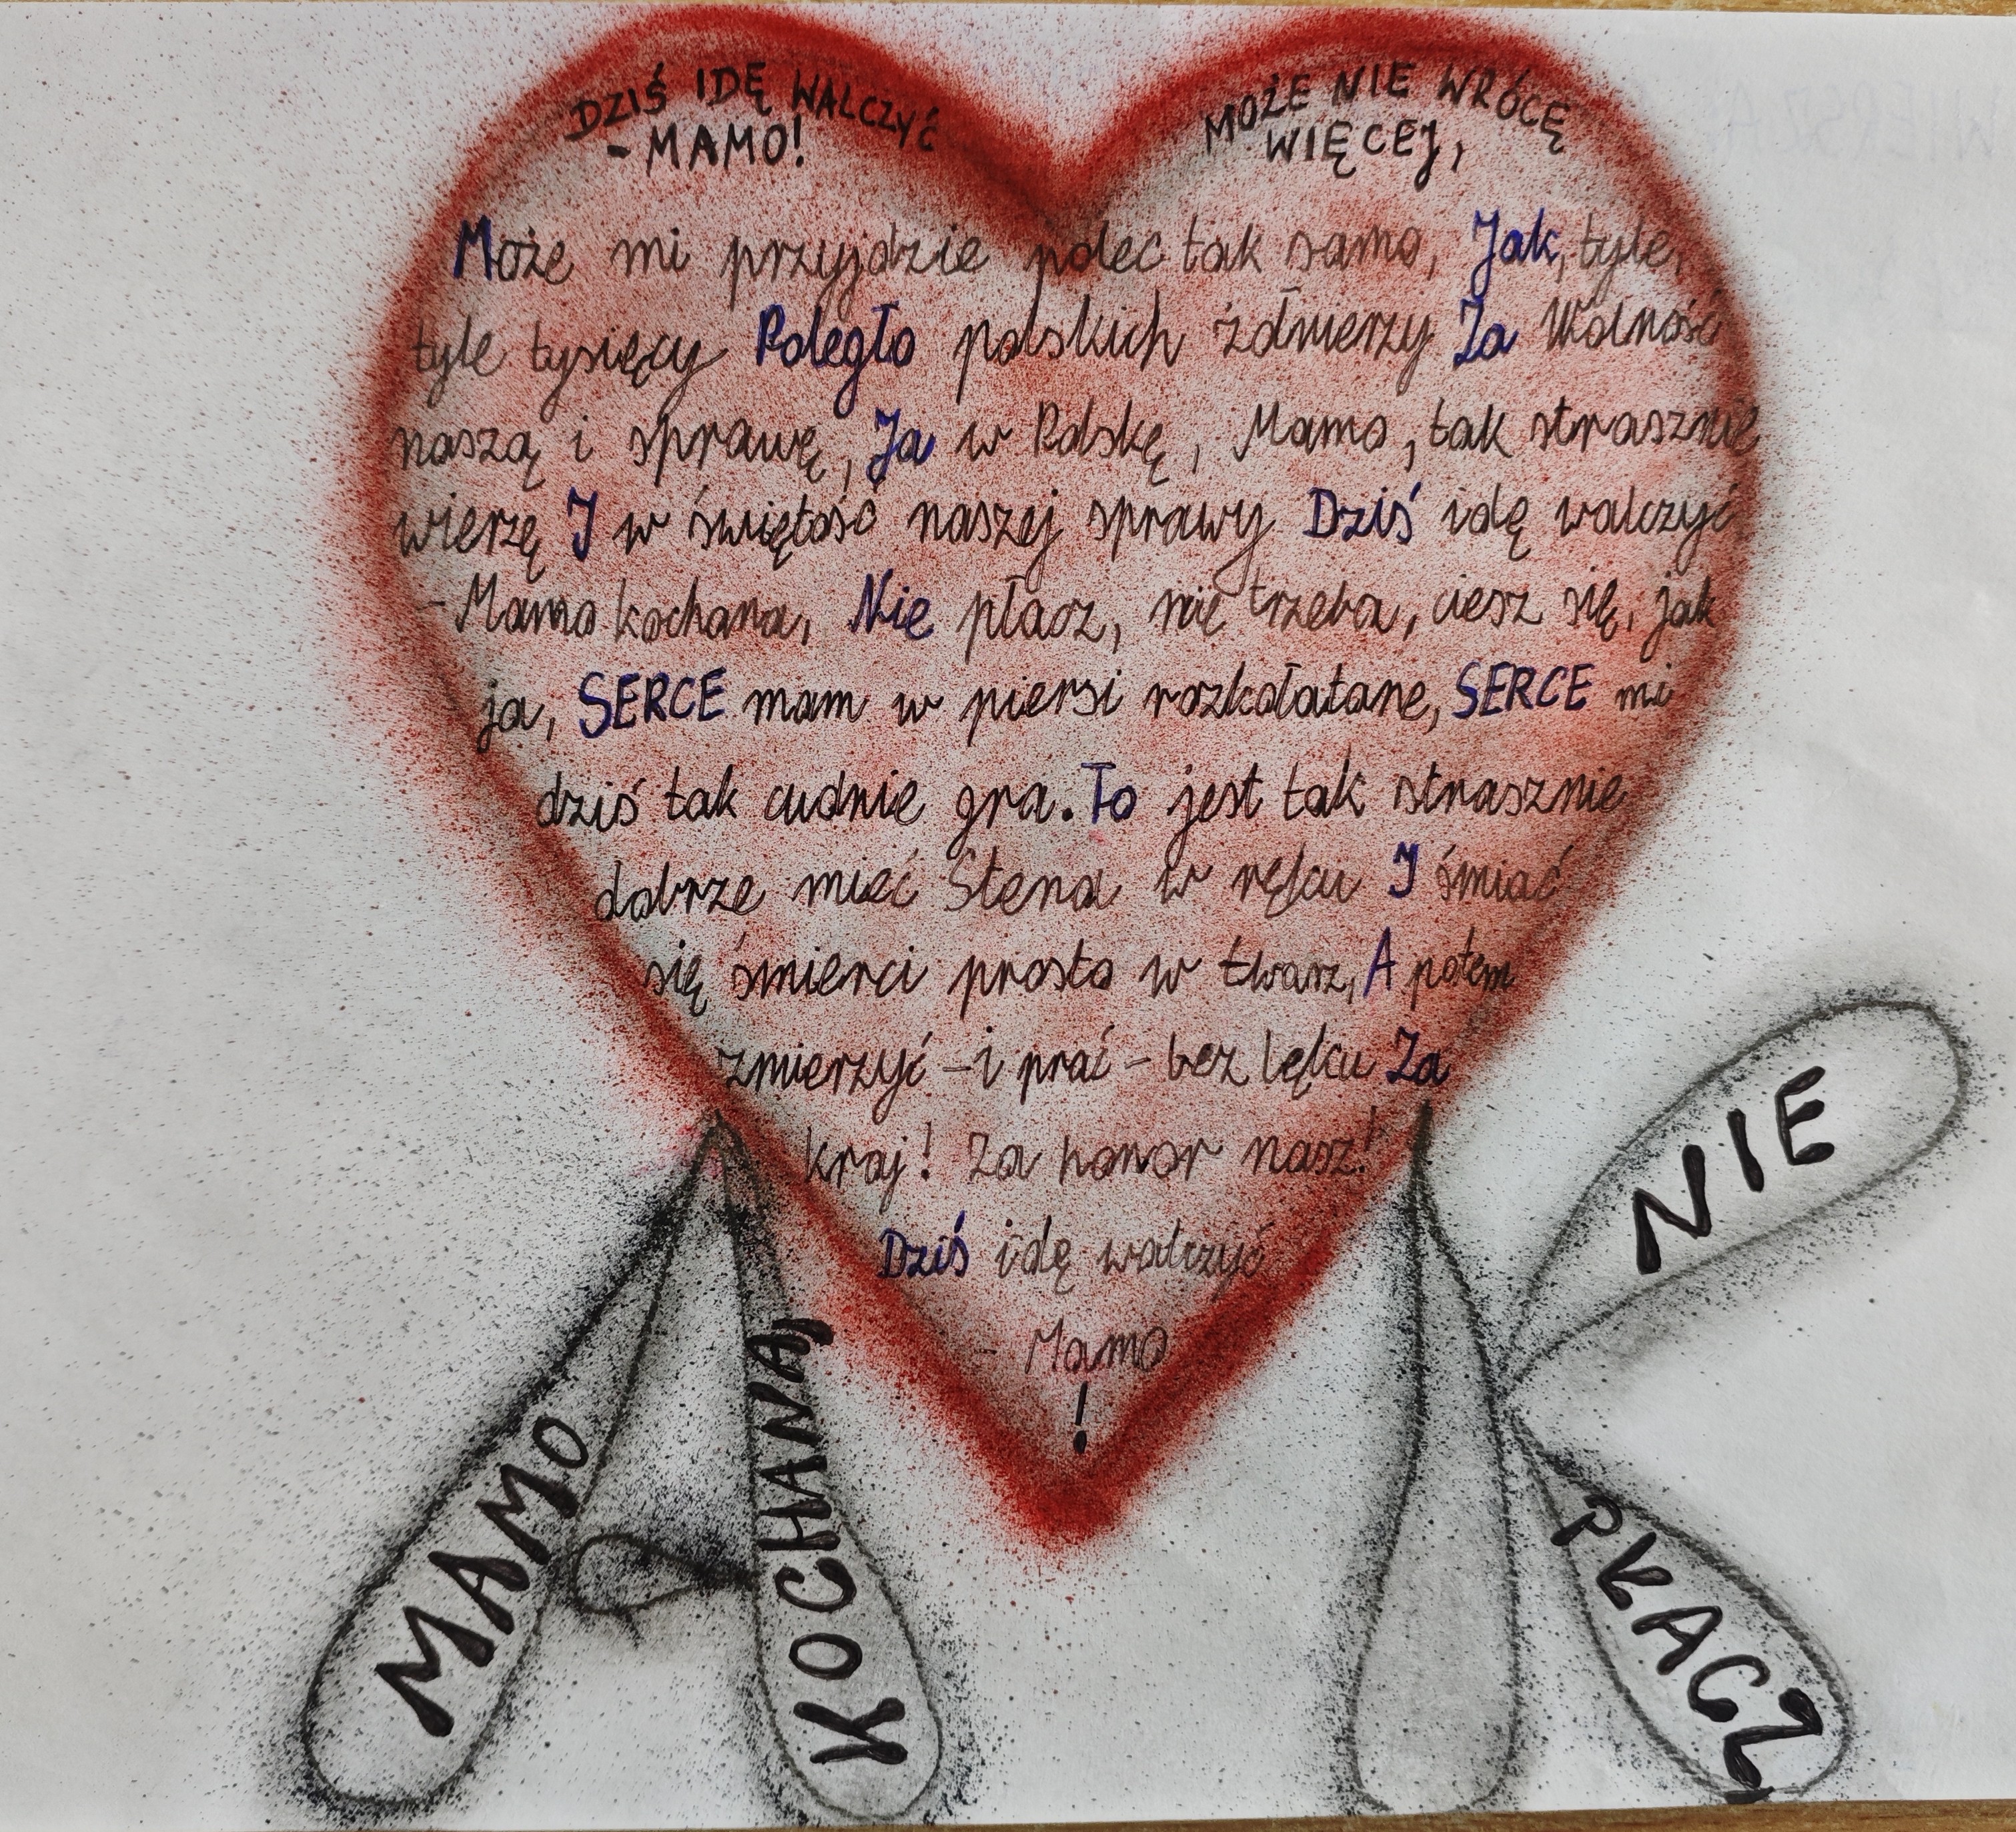 DZIŚ IDĘ WALCZYĆ
- MAMO!
MOŻE NIE WRÓCĘ
WIĘCEJ,
Może mi przyjdzie polec tak samo, Jak, tyle,
tyle tysięcy Poległo polskich żołnierzy Za Wolność
naszą i sprawę, Ja w Polskę, Mamo, tak strasznie
wierzę I w świętość naszej sprawy Dziś idę walczyć
- Mamo kochana, Nie płacz, nie trzeba, ciesz się, jak
ja, SERCE mam w piersi rozkołatane, SERCE mi
dziś tak cudnie gra. To jest tak strasznie
dobrze mieć Stena w ręku I śmiać
się śmierci prosto w twarz, A potem
zmierzyć - i prać - bez lęku Za
kraj! Za honor nasz!
Dziś idę walczyć
- Mamo
!
MAMO
KOCHANA,
NIE
PŁACZ